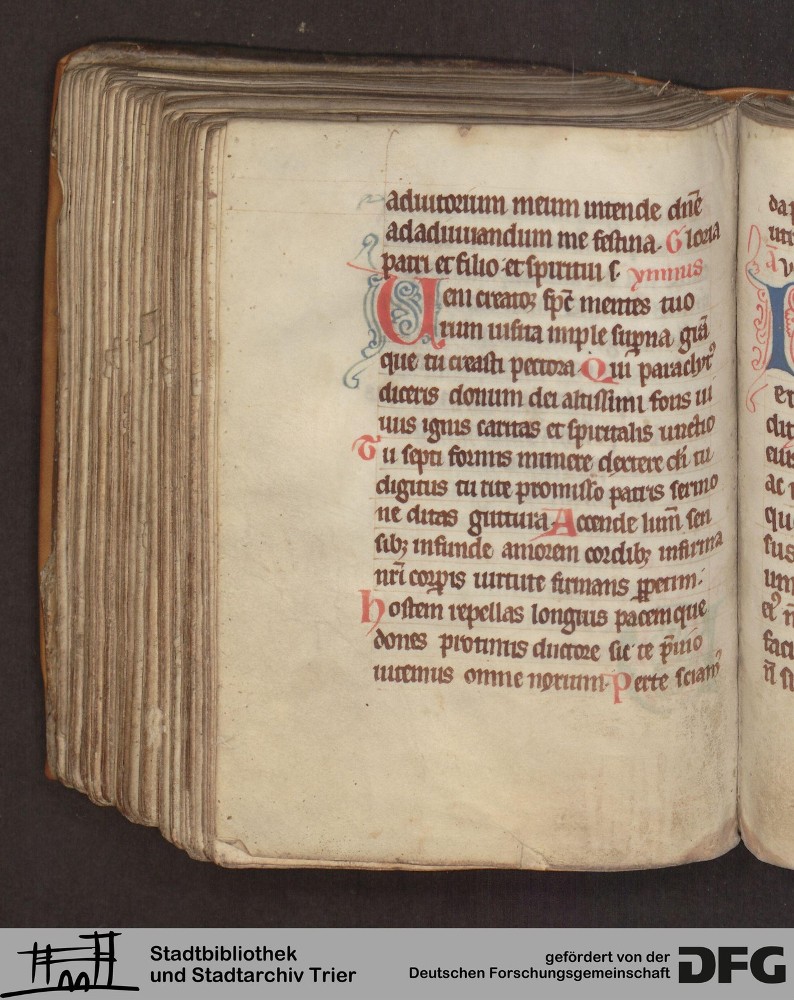 adiutorium meum intende dn̄e
adadiuuandum me festina. Gloria
patri et filio et spiritui s. ymnus
Ueni creator sp̄c mentes tuo
rum uisita imple sup̄na gr̄a
que tu creasti pectora Qui paraclyt᷒
diceris donum dei altissimi fons ui
uus ignis caritas et spiritalis unctio
Tu septi formis munere dextere dī tu
digitus tu rite promisso patris sermo
ne ditas guttura Accende lum̄ sen
sibꝫ infunde amorem cordibꝫ infirma
nr̄i corꝑis uirtute firmans ꝑpetim.
hostem repellas longius pacemque
dones protinus ductore sic te p̄uio
uitemus omne noxium. Perte sciam᷒
dap
ut
er
dit
eius
ac
qu
sus
um
faci
Stadtbibliothek
und Stadtarchiv Trier
gefördert von der
Deutschen Forschungsgemeinschaft
DFG